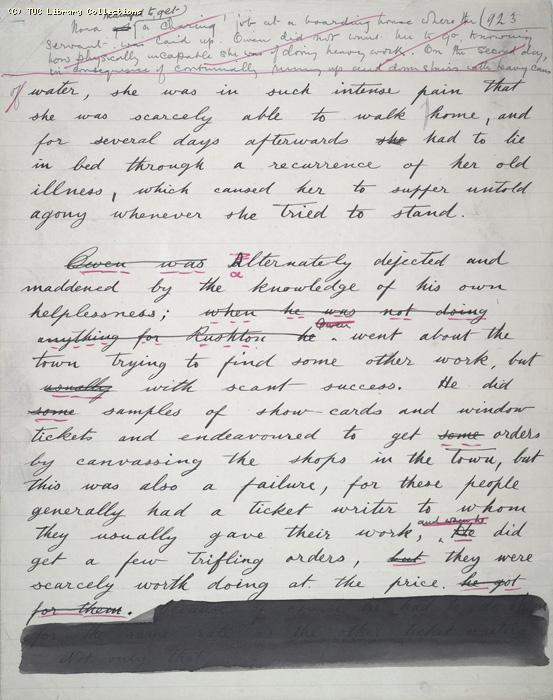 (C) TUC Library Collections
managed to get)
Nora a charing job at a boarding house where the (923
servant was laid up. Owen did not want her to go, knowing
how physically incapable she was of doing heavy work. On the second day,
in consequence of continually running up and downstairs with heavy cans
of water, she was in such intense pain that
she was scarcely able to walk home, and
for several days afterwards she had to lie
in bed through a recurrence of her old
illness, which caused her to suffer untold
agony whenever she tried to stand.
Owen was Alternately dejected and
a
maddened by the knowledge of his own
helplessness; when he was not doing
Owen
anything for Rushton he went about the
town trying to find some other work, but
usually with scant success. He did
some samples of show-cards and window
tickets and endeavoured to get some orders
by canvassing the shops in the town, but
this was also a failure, for these people
generally had a ticket writer to whom
and when he
they usually gave their work, He did
get a few trifling orders, but they were
scarcely worth doing at the price he got
for them.